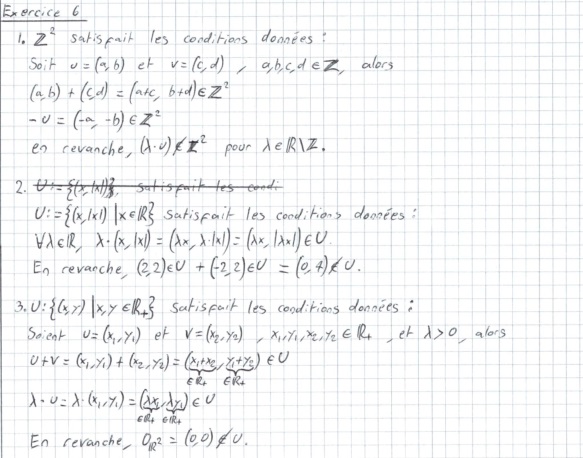 Exercice 6
1. ℤ² satisfait les conditions données :
Soit u = (a, b) et v = (c, d) , a,b,c,d ∈ ℤ, alors
(a, b) + (c, d) = (a+c, b+d) ∈ ℤ²
-u = (-a, -b) ∈ ℤ²
en revanche, (λ·u) ∉ ℤ² pour λ ∈ ℝ\ℤ.
2. U := {(x, |x|)}, satisfait les condi
U := {(x, |x|) | x ∈ ℝ} satisfait les conditions données :
∀λ ∈ ℝ, λ·(x, |x|) = (λx, λ·|x|) = (λx, |λx|) ∈ U
En revanche, (2,2) ∈ U + (-2,2) ∈ U = (0,4) ∉ U.
3. U : {(x,y) | x,y ∈ ℝ₊} satisfait les conditions données :
Soient u = (x₁, y₁) et v = (x₂, y₂) , x₁, y₁, x₂, y₂ ∈ ℝ₊ , et λ > 0, alors
u + v = (x₁, y₁) + (x₂, y₂) = (x₁+x₂, y₁+y₂) ∈ U
∈ℝ₊ ∈ℝ₊
λ·u = λ·(x₁, y₁) = (λx₁, λy₁) ∈ U
∈ℝ₊ ∈ℝ₊
En revanche, 0ℝ² = (0,0) ∉ U.